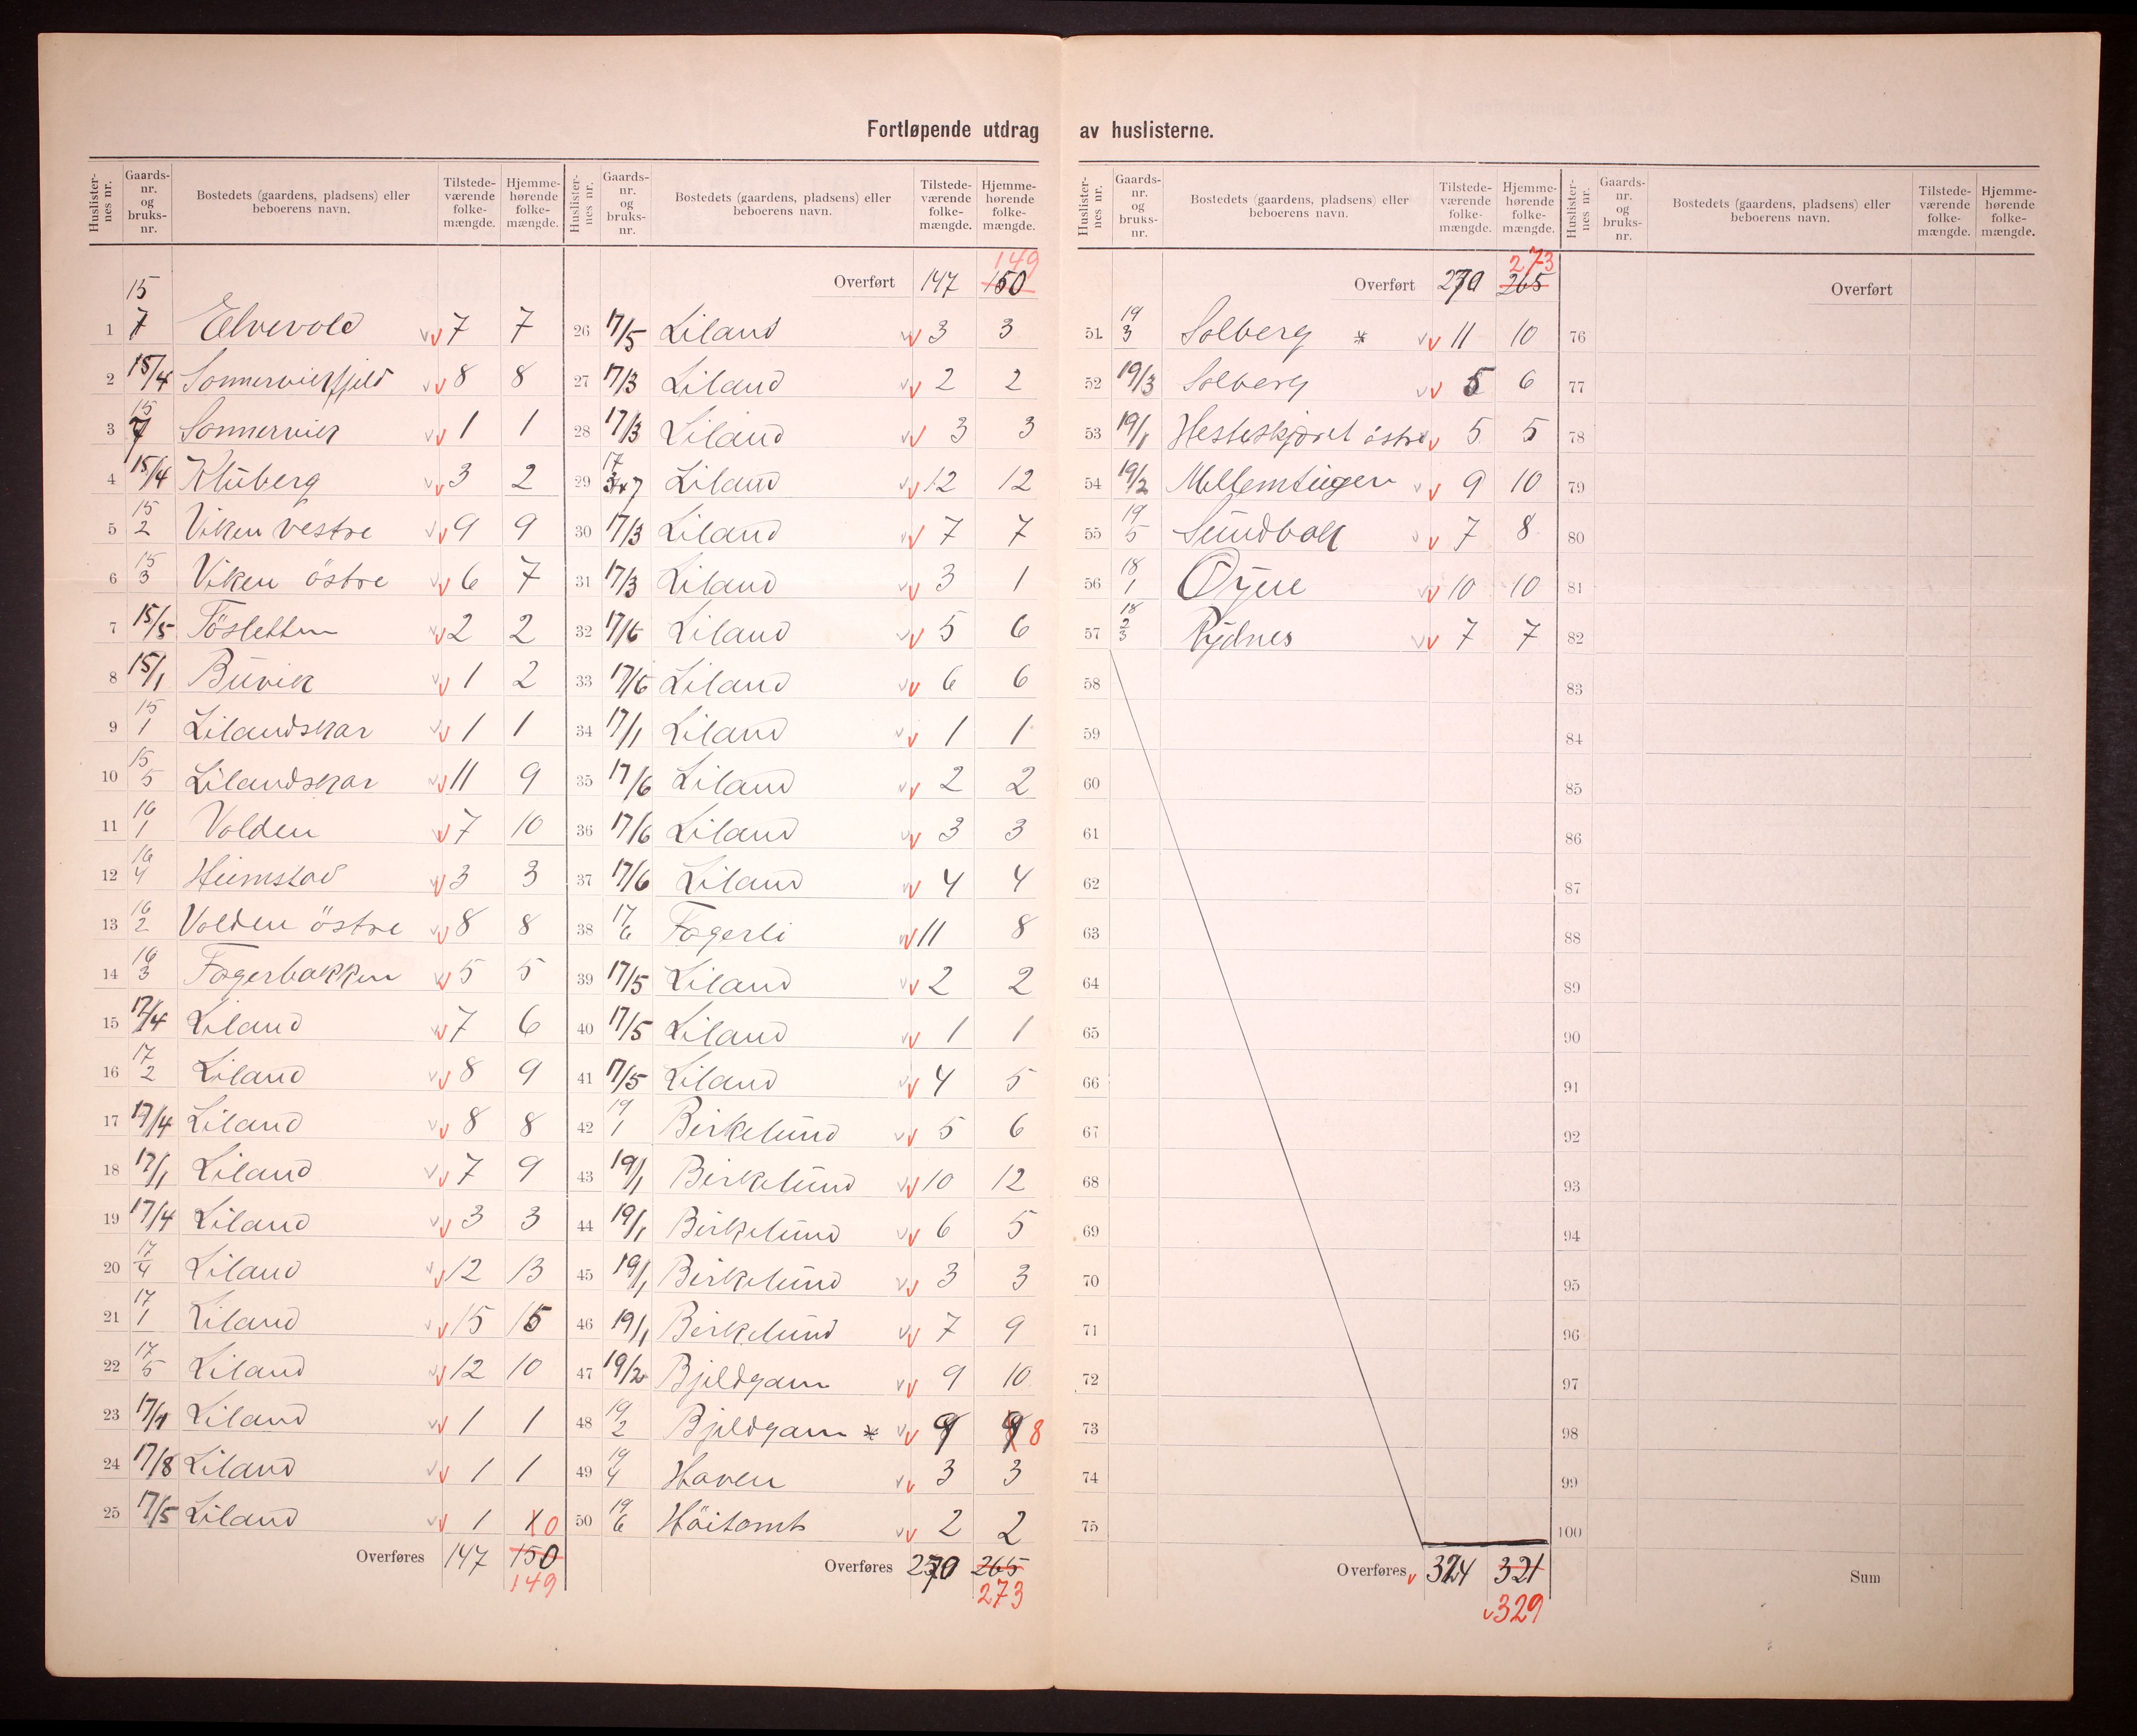 Fortløpende utdrag av huslisterne.
Huslisternes nr. Gaardsnr. og bruksnr. Bostedets (gaardens, pladsens) eller beboerens navn. Tilstedeværende folkemængde. Hjemmehørende folkemængde.
1 15/7 Elvevold 7 7
2 15/4 Sommervikfjeld 8 8
3 15/7 Sommervik 1 1
4 15/4 Kluberg 3 2
5 15/2 Viken vestre 9 9
6 15/3 Viken östre 6 7
7 15/5 Fösletten 2 2
8 15/1 Buvik 1 2
9 15/1 Lilandskar 1 1
10 15/5 Lilandskar 11 9
11 16/1 Volden 7 10
12 16/4 Heimstad 3 3
13 16/2 Volden östre 8 8
14 16/3 Fagerbakken 5 5
15 17/4 Liland 7 6
16 17/2 Liland 8 9
17 17/4 Liland 8 8
18 17/1 Liland 7 9
19 17/4 Liland 3 3
20 17/4 Liland 12 13
21 17/1 Liland 15 15
22 17/5 Liland 12 10
23 17/4 Liland 1 1
24 17/8 Liland 1 1
25 17/5 Liland 1 1 0
Overføres 147 150
149
Huslisternes nr. Gaardsnr. og bruksnr. Bostedets (gaardens, pladsens) eller beboerens navn. Tilstedeværende folkemængde. Hjemmehørende folkemængde.
149
Overført 147 150
26 17/5 Liland 3 3
27 17/3 Liland 2 2
28 17/3 Liland 3 3
29 17/3+7 Liland 12 12
30 17/3 Liland 7 7
31 17/3 Liland 3 1
32 17/6 Liland 5 6
33 17/6 Liland 6 6
34 17/1 Liland 1 1
35 17/6 Liland 2 2
36 17/6 Liland 3 3
37 17/6 Liland 4 4
38 17/6 Fagerli 11 8
39 17/5 Liland 2 2
40 17/5 Liland 1 1
41 17/5 Liland 4 5
42 19/1 Birkelund 5 6
43 19/1 Birkelund 10 12
44 19/1 Birkelund 6 5
45 19/1 Birkelund 3 3
46 19/1 Birkelund 7 9
47 19/2 Bjeldgam 9 10
48 19/2 Bjeldgam * 9 9 8
49 19/4 Haven 3 3
50 19/6 Höitomt 2 2
Overføres 270 265
273
Huslisternes nr. Gaardsnr. og bruksnr. Bostedets (gaardens, pladsens) eller beboerens navn. Tilstedeværende folkemængde. Hjemmehørende folkemængde.
273
Overført 270 265
51 19/3 Solberg * 11 10
52 19/3 Solberg 5 6
53 19/1 Hesteskjæret östre 5 5
54 19/2 Mellemtugen 9 10
55 19/5 Sundbakk 7 8
56 18/1 10 10
57 18 2/3 Rydnes 7 7
58
59
60
61
62
63
64
65
66
67
68
69
70
71
72
73
74
75
Overføres 324 321
329
Huslisternes nr. Gaardsnr. og bruksnr. Bostedets (gaardens, pladsens) eller beboerens navn. Tilstedeværende folkemængde. Hjemmehørende folkemængde.
Overført
76
77
78
79
80
81
82
83
84
85
86
87
88
89
90
91
92
93
94
95
96
97
98
99
100
Sum